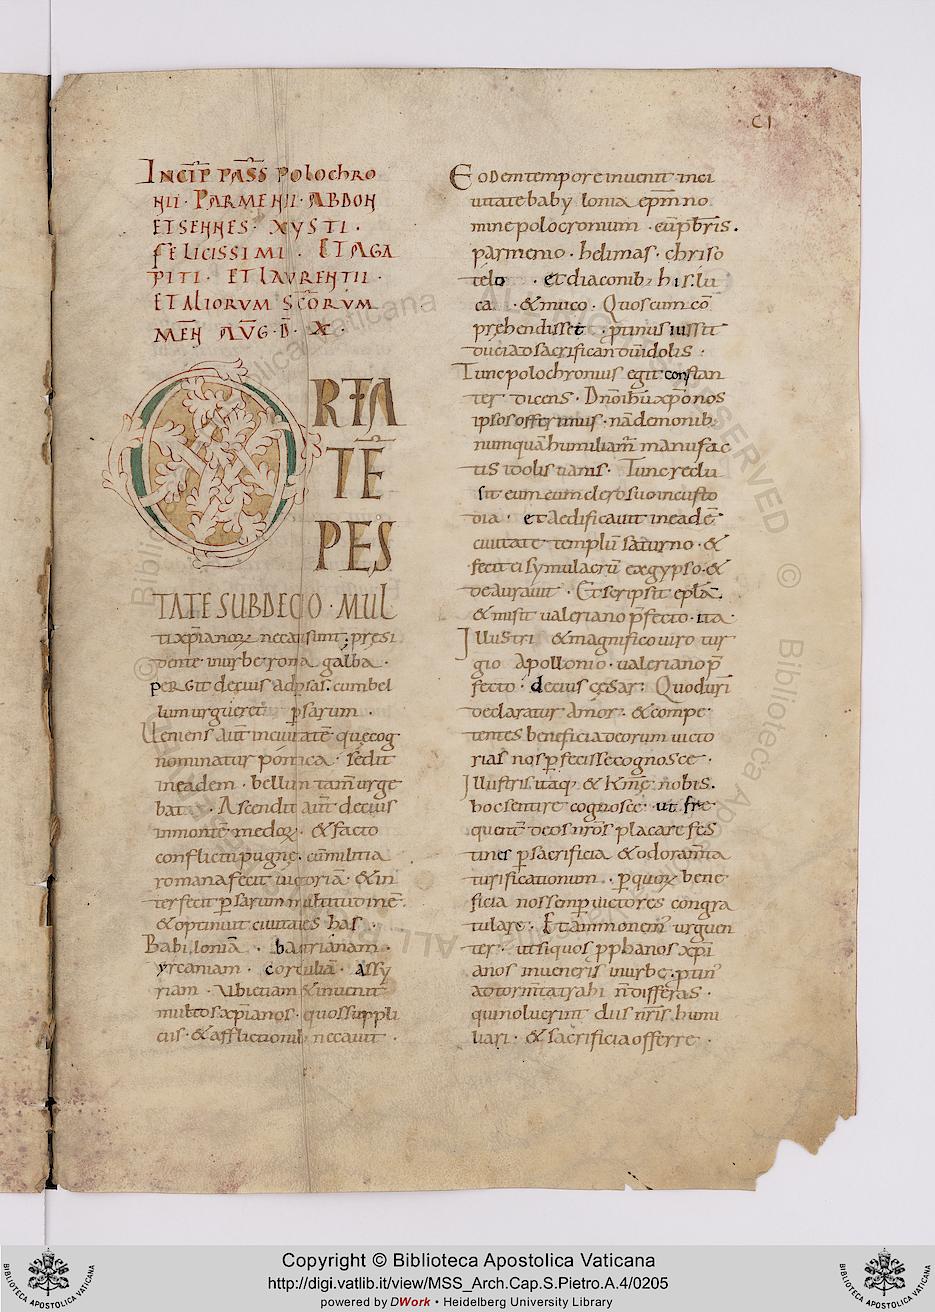 CI
INCIP PASS POLOCHRO
NII · PARMENII · ABDON
ET SENNES · XYSTI ·
FELICISSIMI · ET AGA
PITI · ET LAVRENTII ·
ET ALIORVM SCORVM
MEN AVG · D · X ·
ORTA
TE
PES
TATE SUB DECIO · MUL
ti xpianoꝝ necati sunt · presi
dente in urbe roma galba ·
PERGIT decius ad psas · cum bel
lum urgueret psarum ·
Veniens aut in ciuitate que cog
nominatur pontica · sedit
in eadem · bellum tam urge
bat · Ascendit aut decius
in monte medoꝝ · & facto
conflictu pugne · cu militia
romana fecit uictoria · & in
terfecit psarum multitudine ·
& optinuit ciuitates has ·
Babilonia · bactrianam ·
yrcaniam · cordulia · assy
riam · Ubi etiam & inuenit
multos xpianos · quos suppli
ciis · & afflictionib necauit ·
Eodem tempore inuenit in ci
uitate babylonia epm no
mine polocronium · cu pbris ·
parmenio · helimas · chriso
telo · et diaconib; his · lu
ca · & muco · Quos cum co
prehendisset · ptinus iussit
duci ad sacrificandu idolis :
Tunc polochronius egit constan
ter dicens · Dno ihu xpo nos
ipsos offerimus · na demonib;
numqua humiliam manu fac
tis idolis uanis · Tunc reclu
sit eum cum clero suo in custo
dia · et aedificauit in eade
ciuitate templu saturno · &
fecit ei symulacru ex gypso · &
deaurauit · Et scripsit epla
& misit ualeriano pfecto · ita
Illustri & magnifico uiro tur
gio Apollonio · ualeriano p
fecto · decius cesar · Quod uri
declaratur amor · & compe
tentes beneficia deorum uicto
rias nos pfecisse cognosce ·
Illustris itaq; & Kme nobis ·
hoc sentire cognosce · ut fre
quent deos nros placare fes
tines p sacrificia & odoramta
turificationum · p quoꝝ bene
ficia nos semp uictores congra
tulare · Et ammonem urguen
ter · ut si quos pphanos xpi
anos inueneris in urbe · ptin
ad tormta trahi n differas ·
qui noluerint diis nris humi
liari · & sacrificia offerre ·
Copyright © Biblioteca Apostolica Vaticana
http://digi.vatlib.it/view/MSS_Arch.Cap.S.Pietro.A.4/0205
powered by DWork • Heidelberg University Library